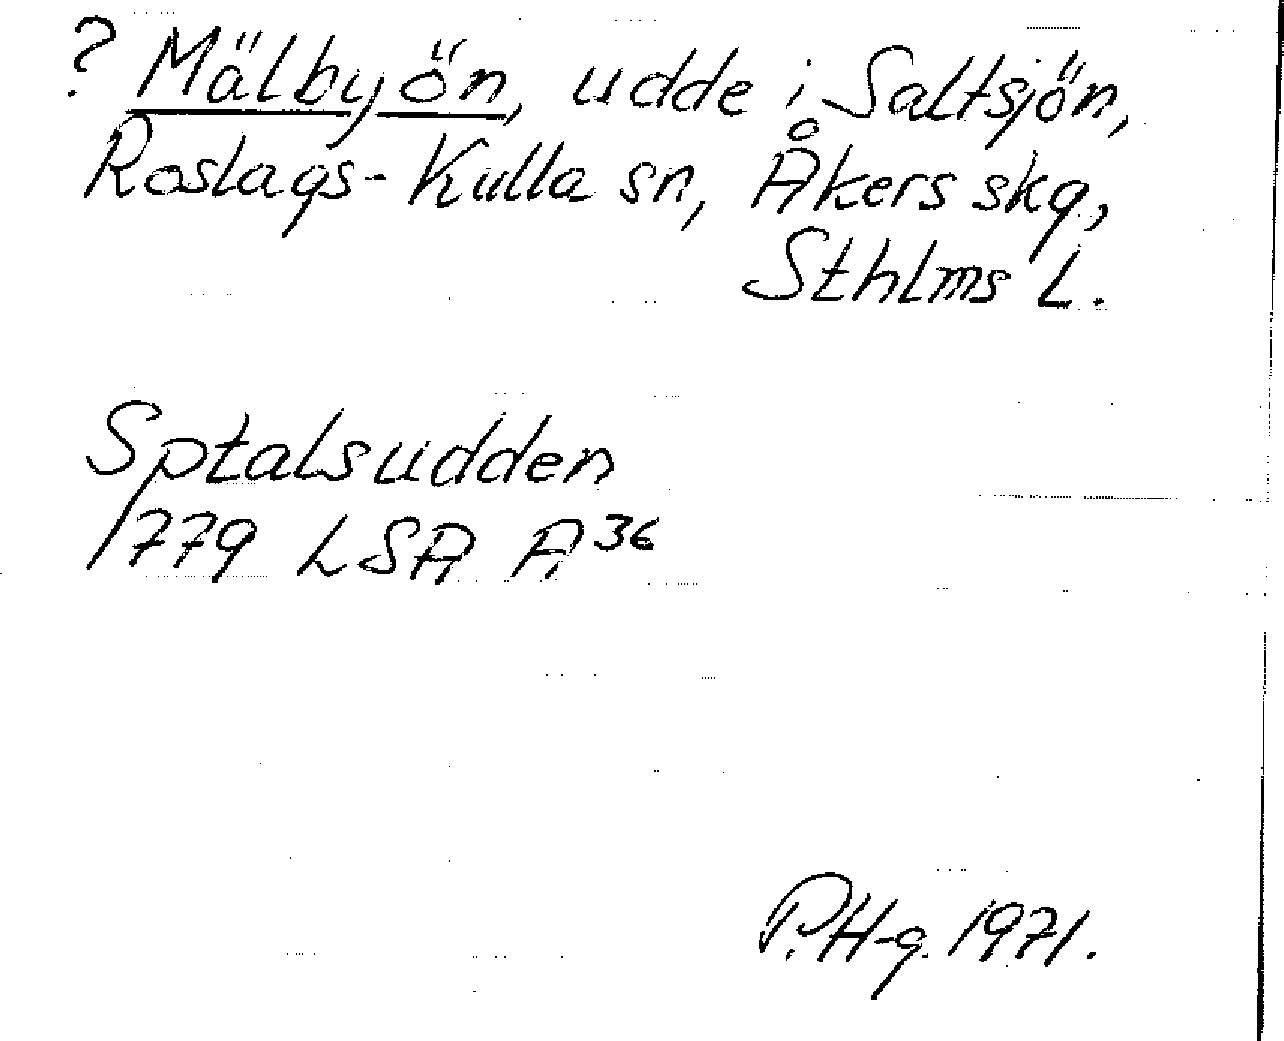 ? Mälbyön, udde i Saltsjön,
Roslags-Kulla sn, Åkers skg,
Sthlms L.
Sptalsudden
1779 LSA A 36
P.H-g. 1971.